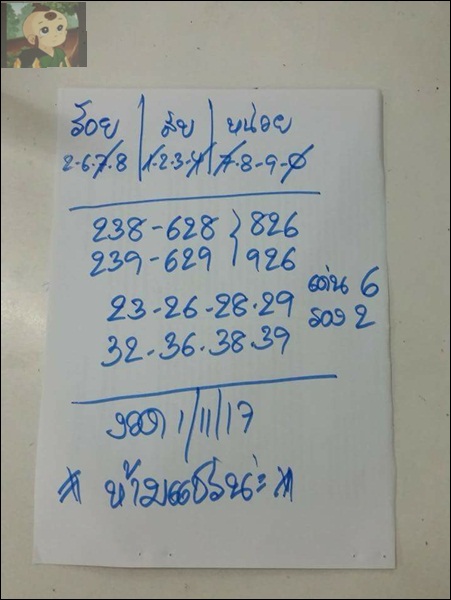 ร้อย | สิบ | หน่วย
2-6-7-8 | 1-2-3-4 | 7-8-9-0
238-628 } 826
239-629 926
23-26-28-29 เด่น 6
32-36-38-39 รอง 2
งวด 1/11/17
* ห้ามแชร์น่ะ *